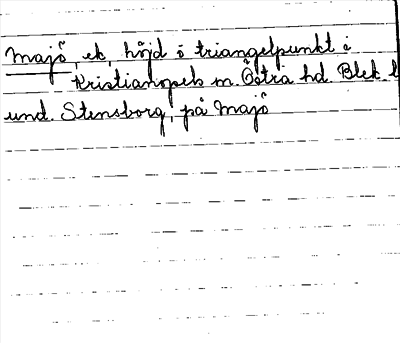 Majö, ek, höjd o triangelpunkt i
Kristianopels sn. Östra hd. Blek. l
und. Stensborg, på Majö